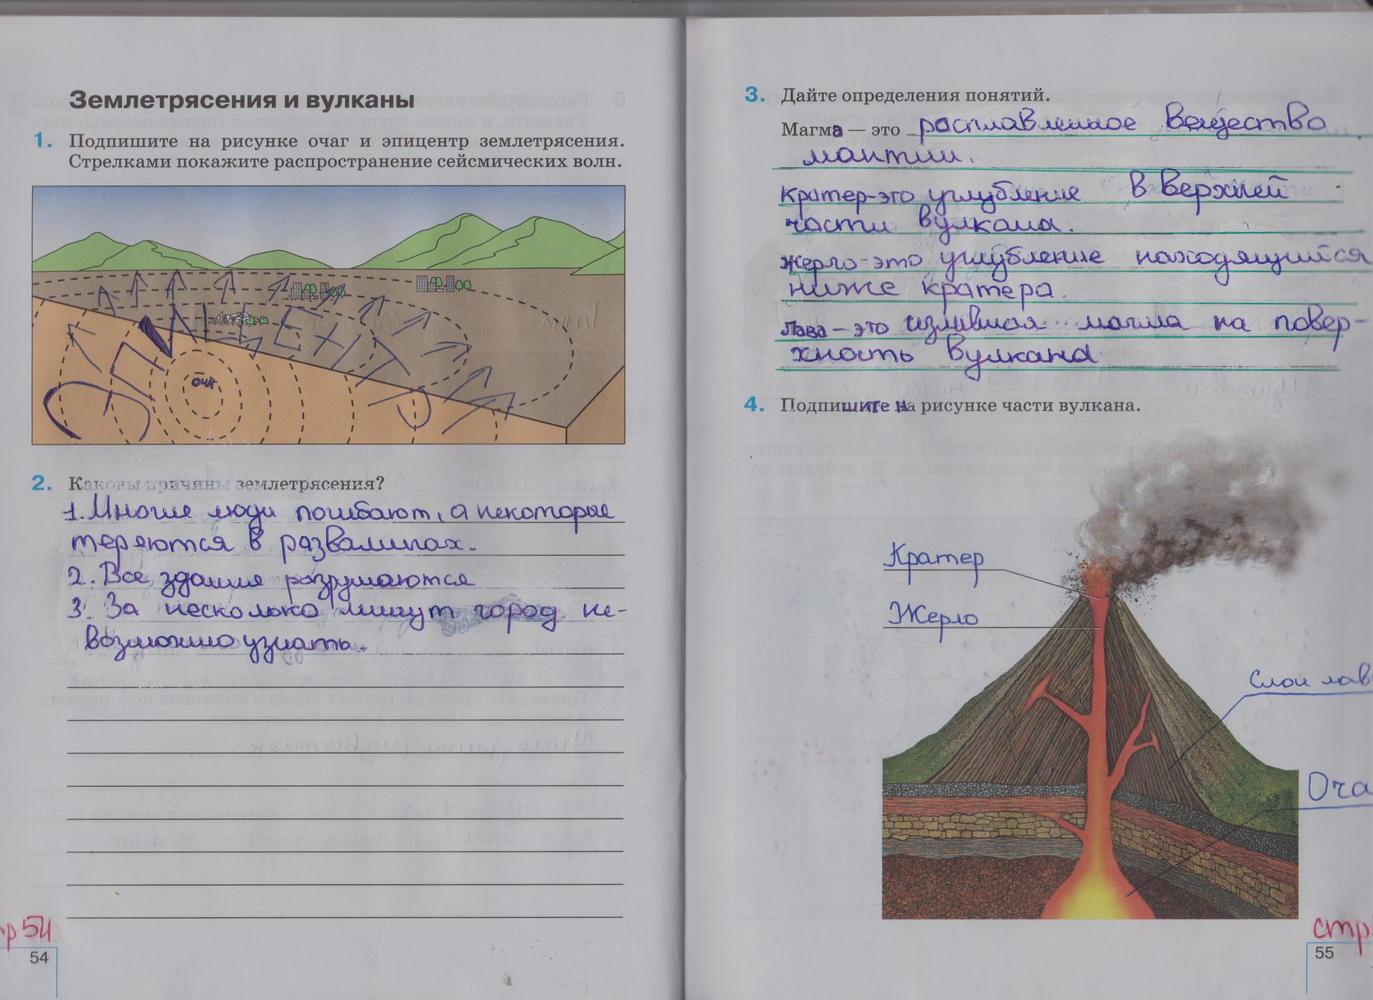 Землетрясения и вулканы
1. Подпишите на рисунке очаг и эпицентр землетрясения.
Стрелками покажите распространение сейсмических волн.
очаг
2. Каковы причины землетрясения?
1. Многие люди погибают, а некоторые
теряются в развалинах.
2. Все здания разрушаются
3. За несколько минут город не-
возможно узнать.
стр 54
54
3. Дайте определения понятий.
Магма — это расплавленное вещество
мантии.
Кратер-это углубление в верхней
части вулкана.
Жерло-это углубление находящийся
ниже кратера.
Лава - это излившая магма на повер-
хность вулкана
4. Подпишите на рисунке части вулкана.
Кратер
Жерло
Слои лав
Оча
стр
55